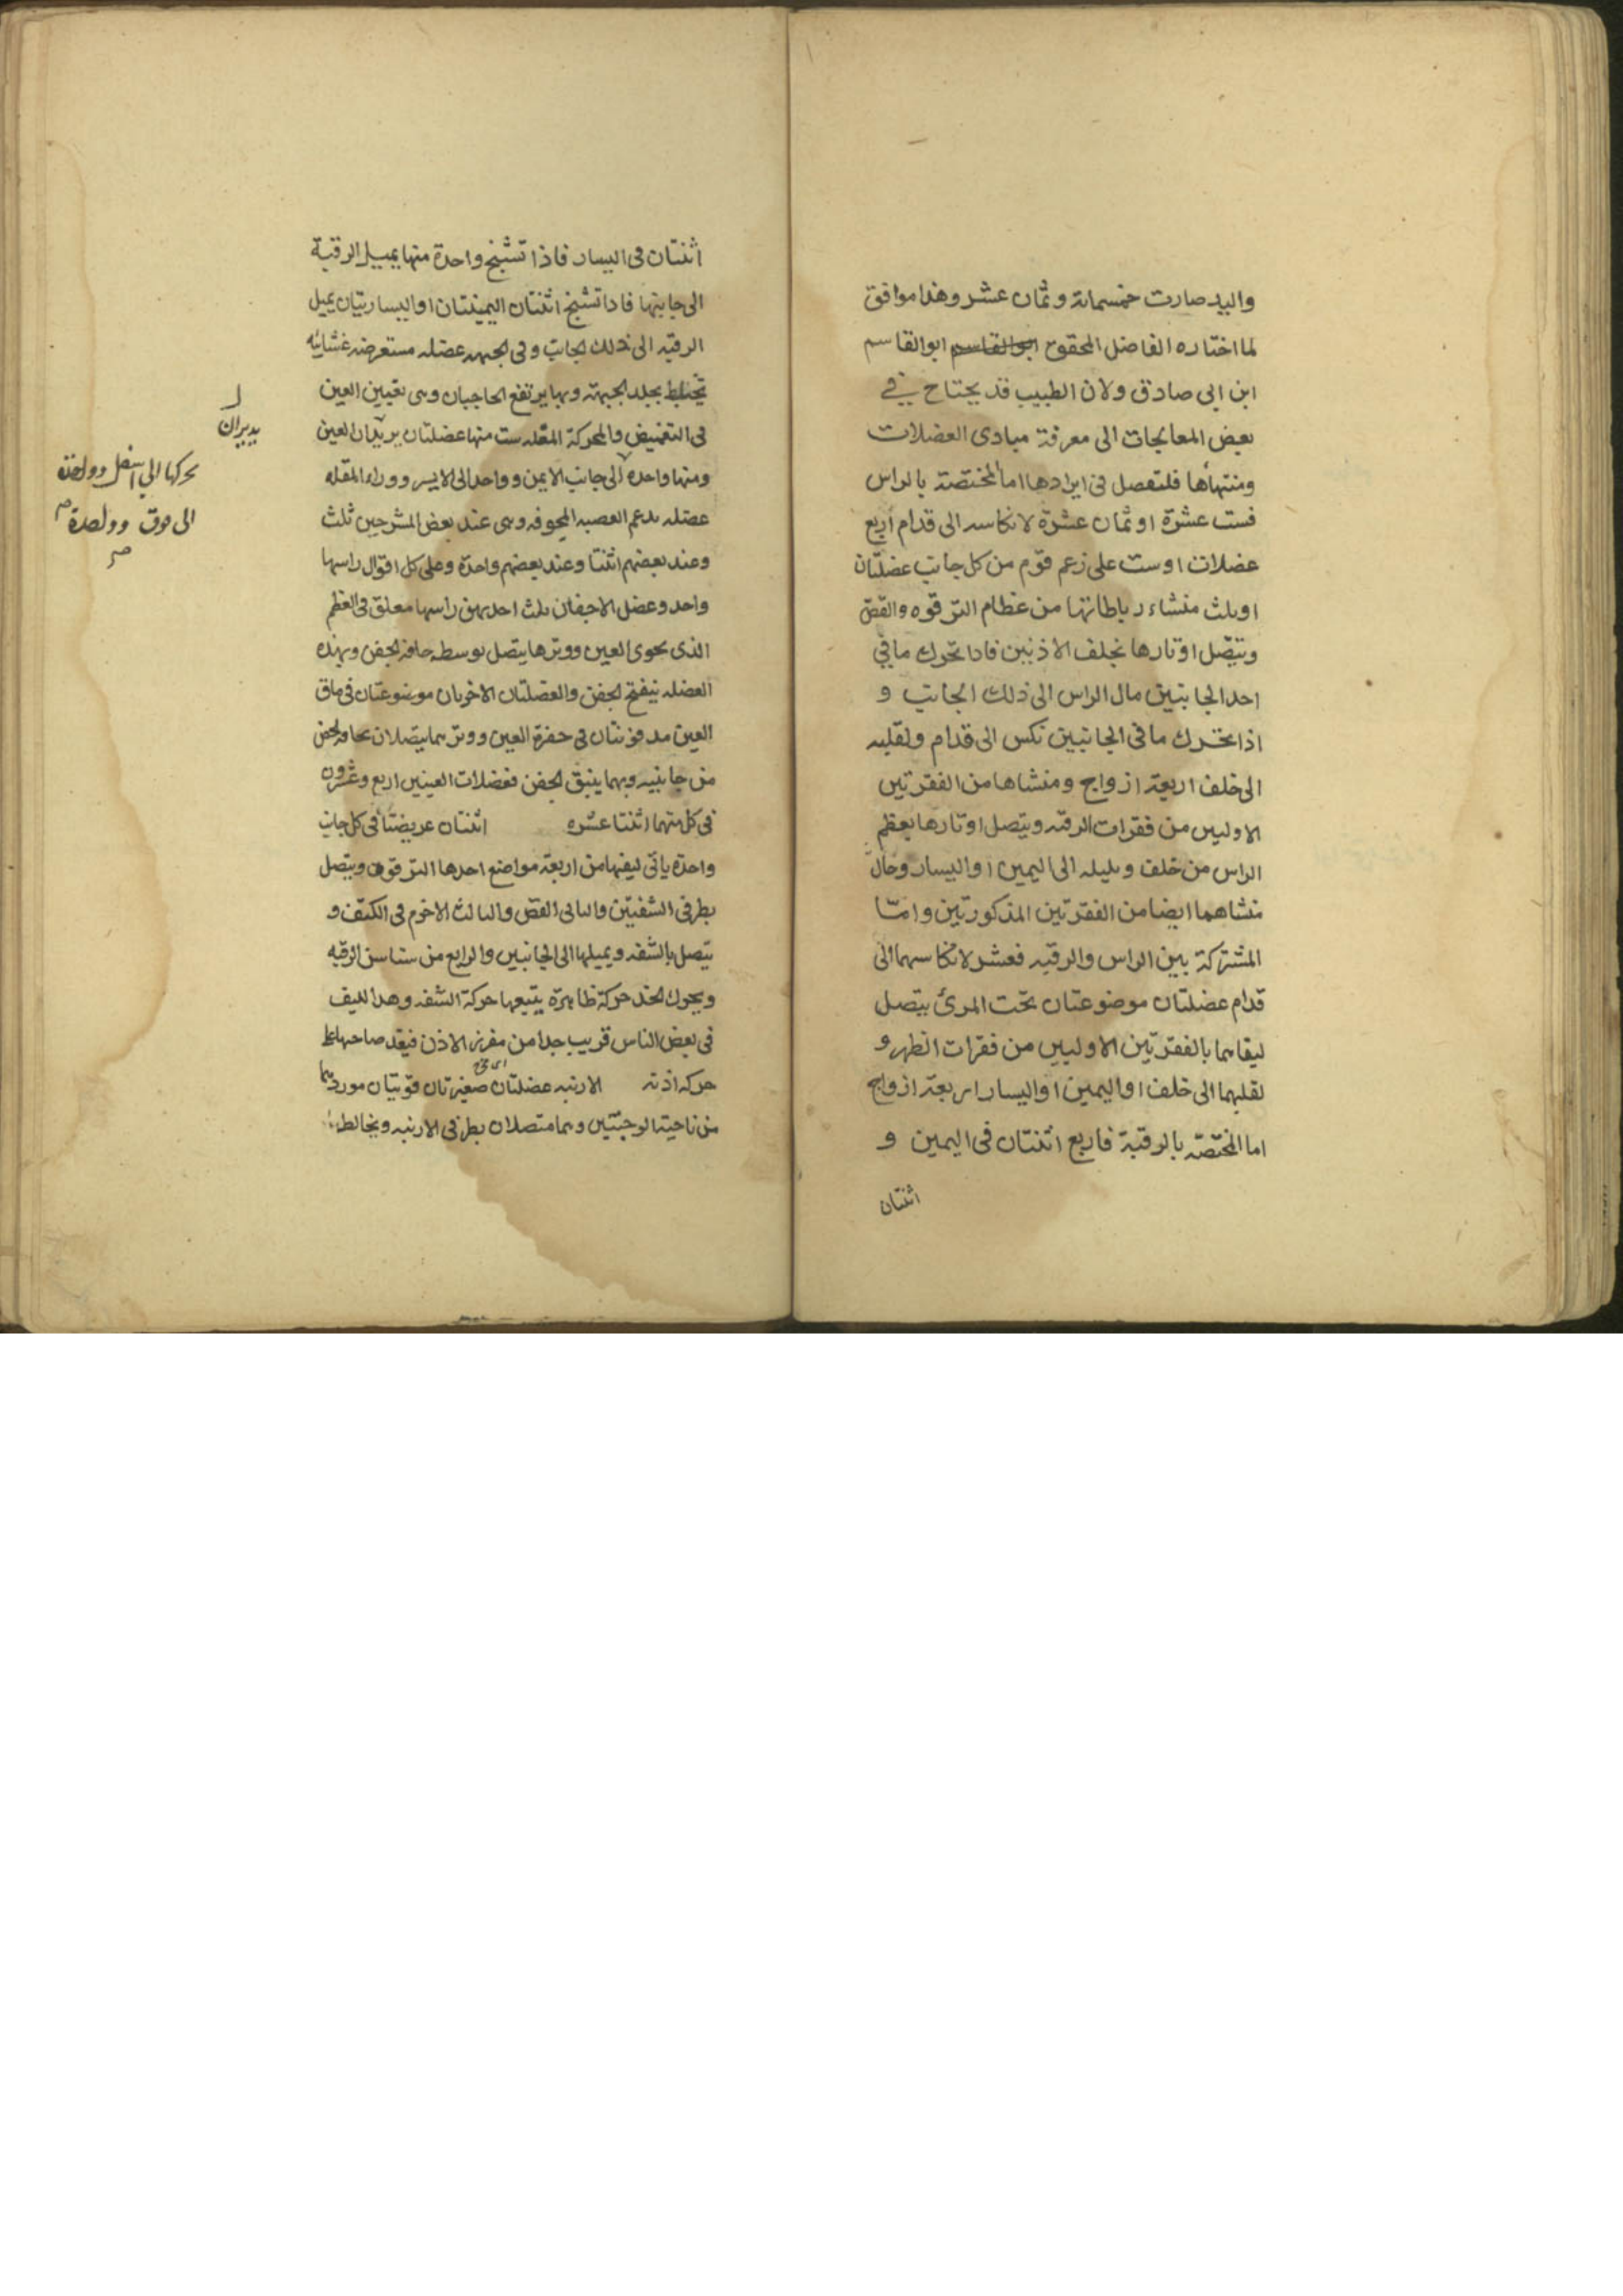 واليد صارت خمسمائة وثمان عشر وهذا موافق
لما اختاره الفاضل المحقق ابو القاسم ابو القاسم
ابن ابى صادق ولان الطبيب قد يحتاج في
بعض المعالجات الى معرفة مبادى العضلات
ومنتهاها فلنفصل فى ايرادها اما المختصة بالراس
فست عشرة او ثمان عشرة لانكاسه الى قدام أربع
عضلات او ست على زعم قوم من كل جانب عضلتان
او ثلث منشاء رباطاتها من عظام الترقوه والقص
وتتصل اوتارها بخلف الاذنين فاذا تحرك ما في
احد الجانبين مال الراس الى ذلك الجانب و
اذا تحرك ما فى الجانبين نكس الى قدام ولقلبه
الى خلف اربعة ازواج ومنشاها من الفقرتين
الاوليين من فقرات الرقبه ويتصل اوتارها بعظم
الراس من خلف ويليله الى اليمين او اليسار وحال
منشاهما ايضا من الفقرتين المذكورتين وامّا
المشتركة بين الراس والرقبه فعشر لانكاسهما الى
قدام عضلتان موضوعتان تحت المرئ يتصل
ليفاهما بالفقرتين الاوليين من فقرات الظهر و
لقلبهما الى خلف او اليمين او اليسار اربعة ازواج
اما المختصّة بالرقبة فاربع اثنتان فى اليمين و
اثنتان
اثنتان فى اليسار فاذا تشنج واحدة منها يميل الرقبة
الى جانبها فاذا تشنج اثنتان اليمينتان او اليساريتان يميل
الرقبه الى ذلك الجانب وفى الجبهه عضله مستعرضه غشائيه
تختلط بجلد الجبهة وبها يرتفع الحاجبان وهى تعيين العين
فى التغميض والمحركة المقله ست منها عضلتان يريدان العين
ومنها واحده الى جانب الايمن وواحد الى الايسر ووراء المقله
عضله يدعم العصبه المجوفه وهى عند بعض المشرحين ثلث
وعند بعضهم اثنتا وعند بعضهم واحدة وعلى كل اقوال راسها
واحد وعضل الاجفان ثلث احديهن راسها معلق فى العظم
الذى يحوى العين ووترها يتصل بوسطه حافه الجفن وبهذه
العضله ينفتح الجفن والعضلتان الاخريان موضوعتان فى ماق
العين مدفونتان فى حفرة العين ووترهما يتصلان بحافه الجفن
من جانبيه وبهما ينبق الجفن فعضلات العينين اربع وعشرون
فى كل منهما اثنتا عشره اثنتان عريضتا فى كل جانب
واحدة ياتى ليفها من اربعة مواضع احدها الترقوه ويتصل
بطرفى الشفتين والثانى القص والثالث الاخرم فى الكتف و
يتصل بالشفه ويميلها الى الجانبين والرابع من سناسن الرقبه
ويحرك الخد حركة ظاهرة يتبعها حركة الشفه وهذا الليف
فى بعض الناس قريب جدا من مغرز الاذن فيقد صاحبها على
حركه اذنه الارنبه عضلتان صغيرتان قويتان موردهما
من ناحية الوجنتين وهما متصلان بطرفى الارنبه ويخالط
يديران
يحركها الى اسفل وواحدة
الى فوق وواحدة